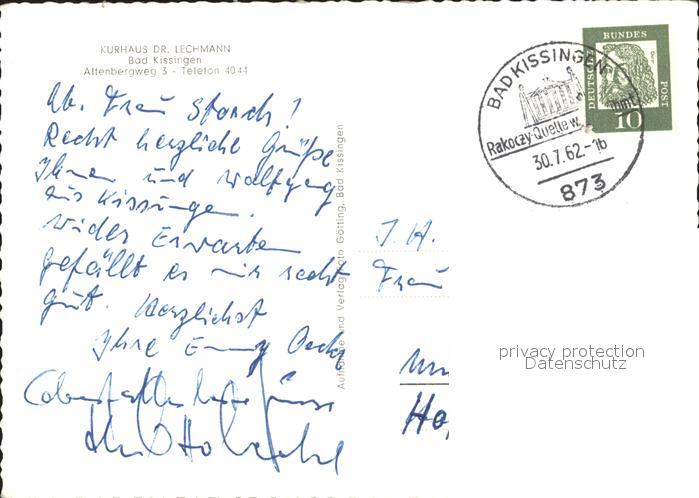 KURHAUS DR. LECHMANN
Bad Kissingen
Altenbergweg 3 - Telefon 4044
Lb. Frau Storch!
Recht herzliche Grüße
Ihnen und Wolfgang
aus Kissingen.
Wider Erwarten
gefällt es mir recht
gut. Herzlichst
Ihre
Aufnahme und Verlag Foto Götting, Bad Kissingen
BAD KISSINGEN
Rakoczy-Quelle w.
30.7.62.-16
873
DEUTSCHE
BUNDES
POST
10
Frau
privacy protection
Datenschutz